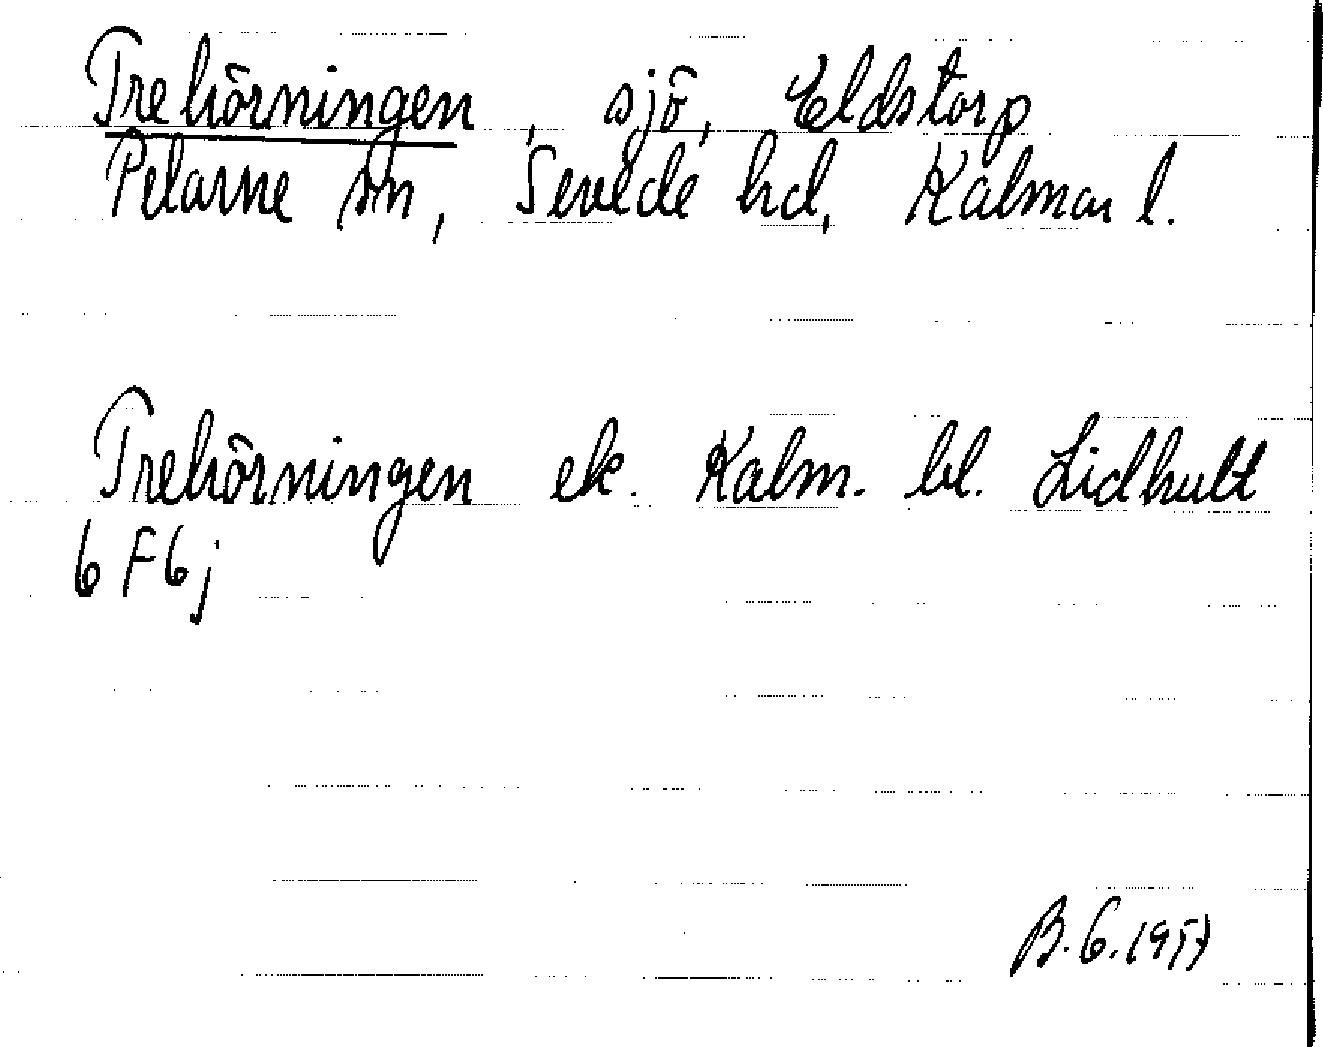 Trehörningen, sjö, Eldstorp
Pelarne sn, Sevede hd, Kalmar l.
Trehörningen ek. Kalm. bl. Lidhult
6F6j
B.G. 1957